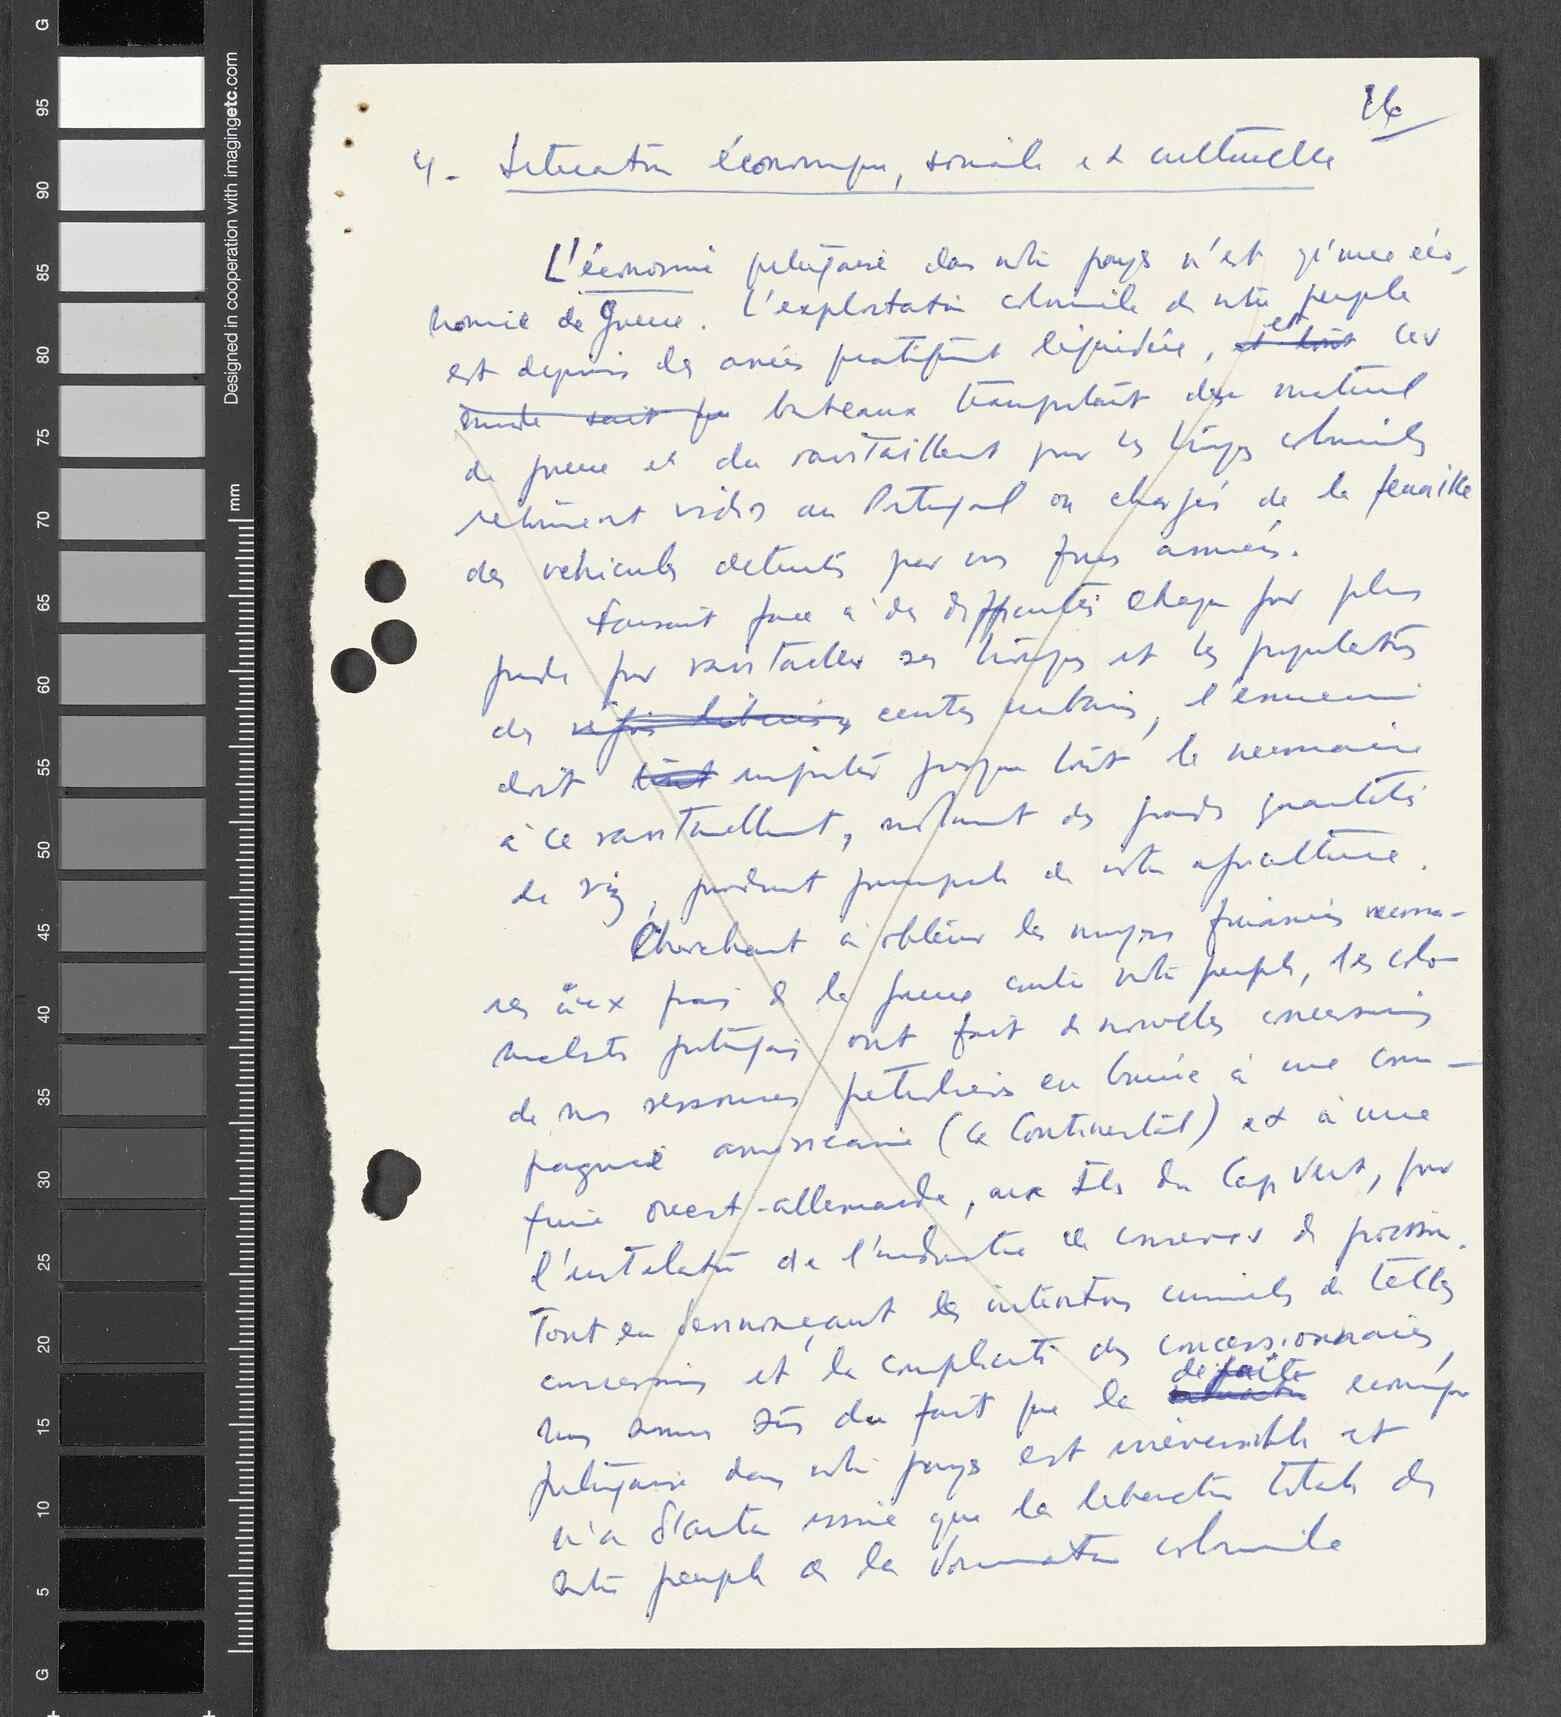 16
4. Situation économique, sociale et culturelle
L'économie portugaise dans notre pays n'est qu'une éco-
nomie de guerre. L'exploitation coloniale de notre peuple
est depuis des années pratiquement liquidée, et tout et les
bateaux transportant du matériel
de guerre et du ravitaillement pour les troupes coloniales
retournent vides au Portugal ou chargés de la ferraille
des vehicules detruits par nos forces armées.
Faisant face à des difficultés chaque jour plus
grandes pour ravitailler ses troupes et les populations
des centres urbains, l'ennemi
doit tout importer presque tout le necessaire
à ce ravitaillement, notamment des grandes quantités
de riz, produit principale de notre agriculture.
Cherchant à obtenir les moyens financiers necessai-
res aux frais de la guerre contre notre peuple, les colo-
nialistes portugais ont fait de nouvelles concessions
de nos ressources petrolières en Guinée à une com-
pagnie américaine (la Continental) et à une
firme ouest-allemande, aux Iles du Cap Vert, pour
l'installation de l'industrie de conserves de poisson.
Tout en denonçant les intentions criminelles de telles
concessions et la complicité des concessionnaires,
nous sommes sûrs du fait que la défaite économique
portugaise dans notre pays est irréversible et
n'a d'autre issue que la liberation totale de
notre peuple de la domination coloniale
G
95
90
85
80
75
70
65
60
55
50
45
40
35
30
25
20
15
10
5
G
mm
Designed in cooperation with imagingetc.com